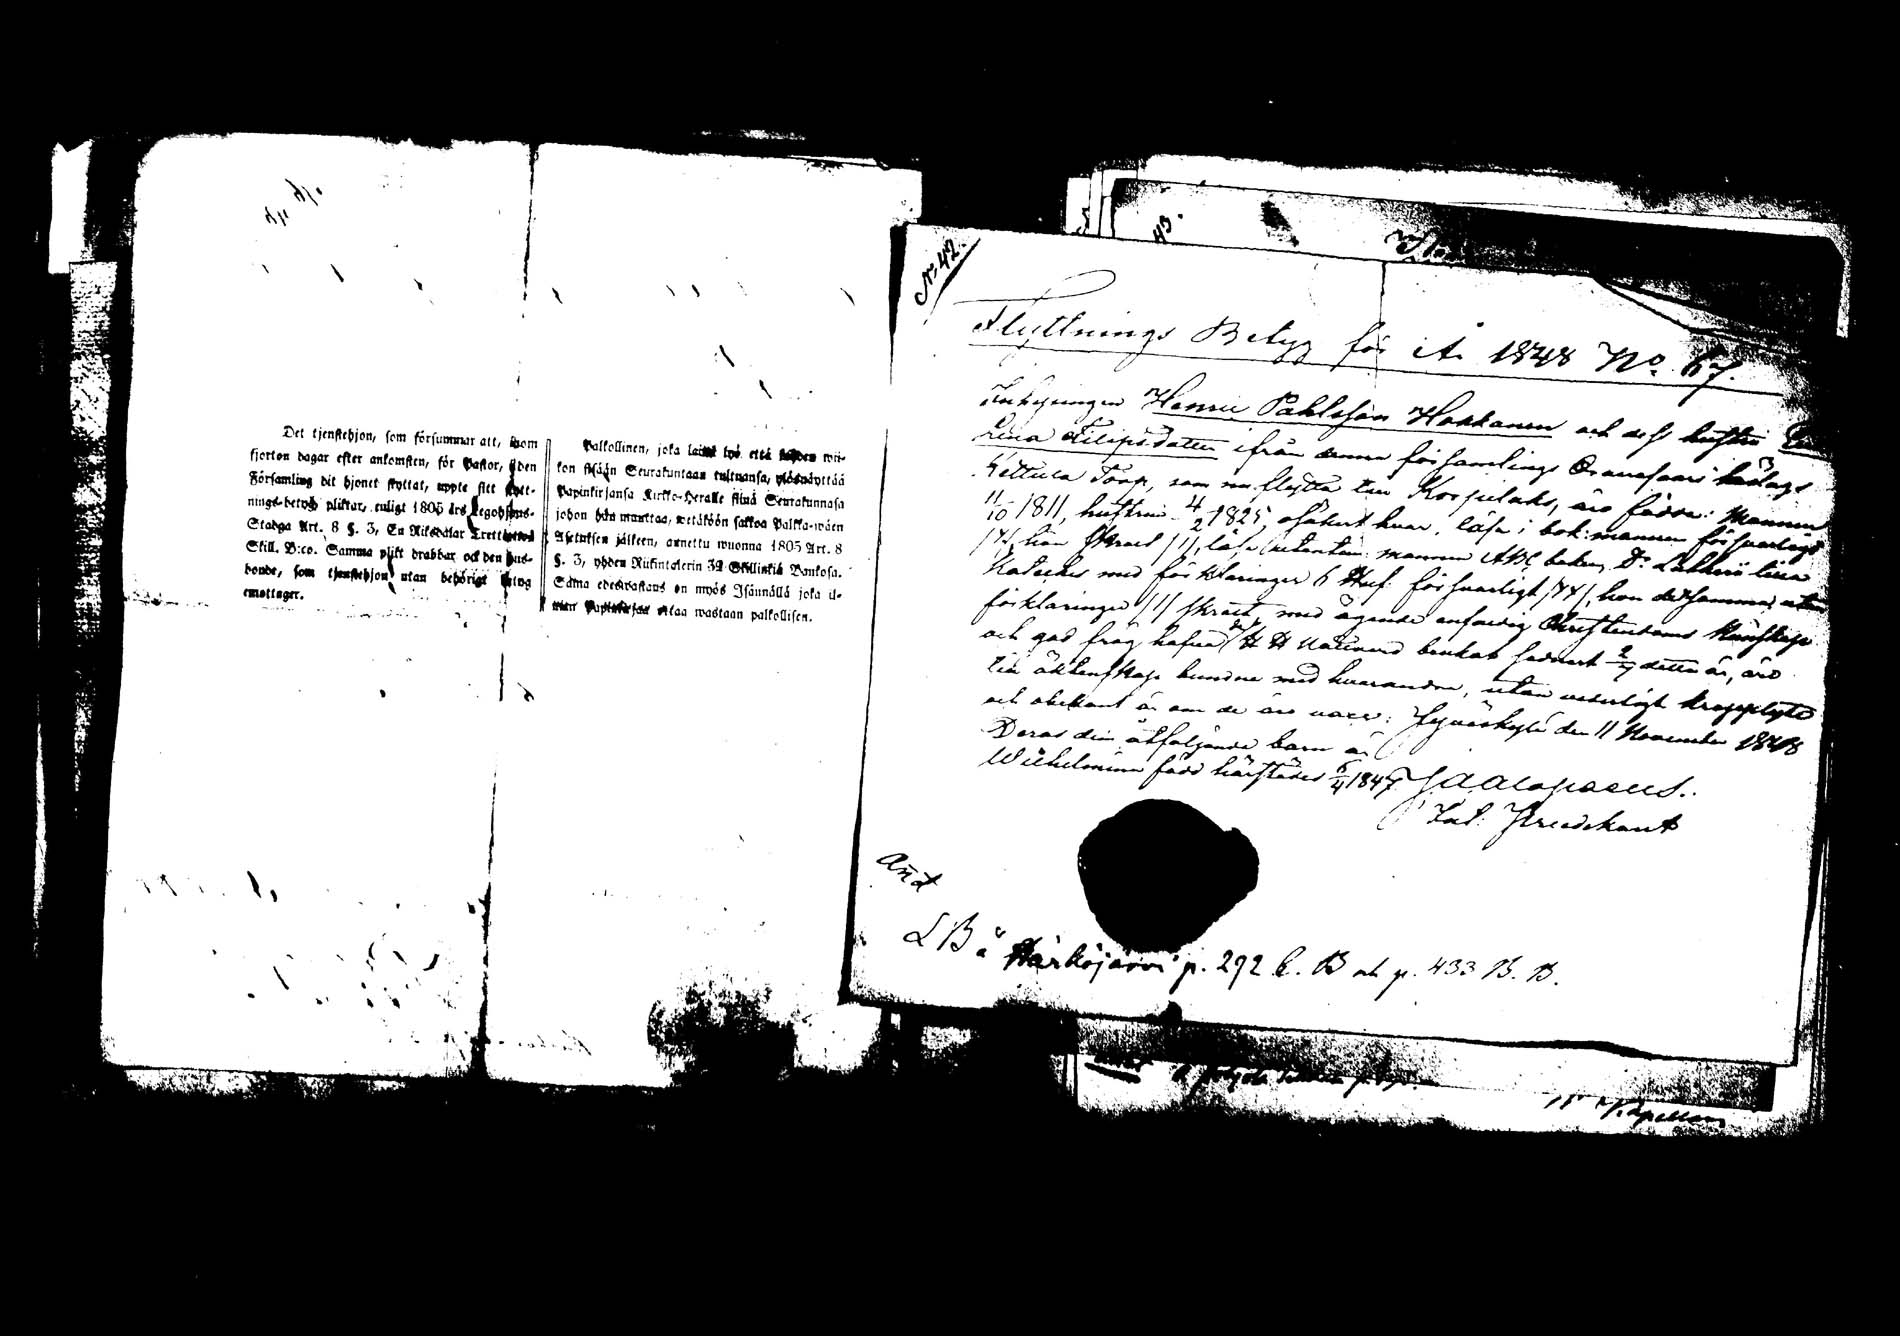 Det tjenstehjon, som försummar att, inom
fjorton dagar efter ankomsten, för Pastor, i den
Församling dit hjonet flyttat, uppte sitt flytt-
nings-betyg pliktar, enligt 1805 års Legohjons-
Stadga Art. 8 §. 3, En Riksdalar Trettiotvå
Skill. B:co. Samma plikt drabbar ock den hus-
bonde, som tjenstehjon utan behörigt betyg
emottager.
Palkollinen, joka laimi lyö että kahden wii-
kon sisään Seurakuntaan tultuansa, ylösnäyttää
Papinkirjansa Kirkko-Herralle siinä Seurakunnasa
johon hän muuttaa, wetäköön sakkoa Palkka-wäen
Asetuksen jälkeen, annettu wuonna 1805 Art. 8
§. 3, yhden Riikintalerin 32 Skillinkiä Bankosa.
Sama edeswastaus on myös Isännällä joka il-
man Papinkirjaa ottaa wastaan palkollisen.
43.
No 42.
Flyttnings Betyg för År 1848 No 67.
Inhysingen Henric Pahlsson Hokkanen och dess hustru
Filipsdotter ifrån denna församlings Oravasaari hålags
Kettula Torp, som nu flytta till Korpilaks, äro födda: Mannen
11/10 1811, hustrun 4/2 1825, osäkert hvar, läsa i bok: mannen försvarligt
hon skralt läsa utantill: mannen ABC boken,
Kateches med förklaringen 6 Huf: försvarligt hon detsamma utan
förklaringen skralt, med ägande Christendoms kunskap
och god frägd hafva H H Nattvard senast 2/7 detta år, äro
till äktenskap bundne med hvarandra, utan veterligt kroppslyte
och obekant är om de äro vacc: Jyväskylä den 11 November 1848
Deras åtföljande barn är
Wilhelmina född härstädes 6/4 1847
And
LB å Härköjärvi p. 292 B och p. 433 B. B.
Kapellan